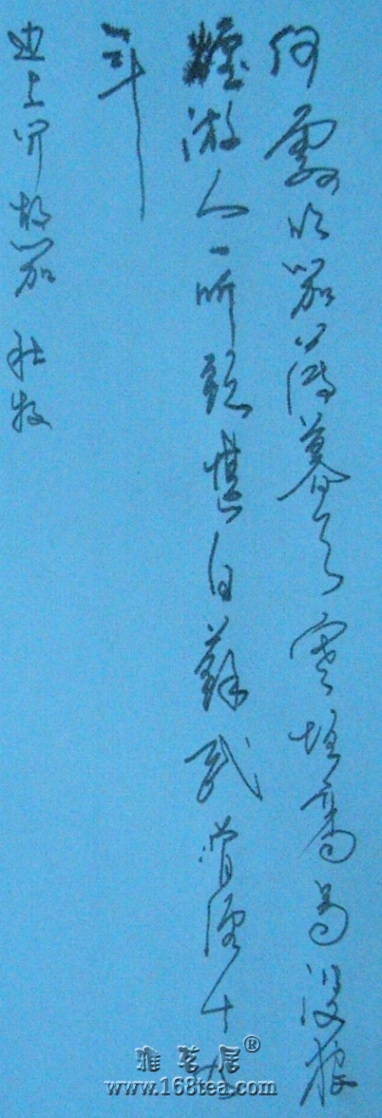 何處吹笳薄暮天塞垣高鳥没狼
煙游人一听頭堪白蘇武曾經十九
年
边上闻胡笳 杜牧
雅茗居®
www.168tea.com